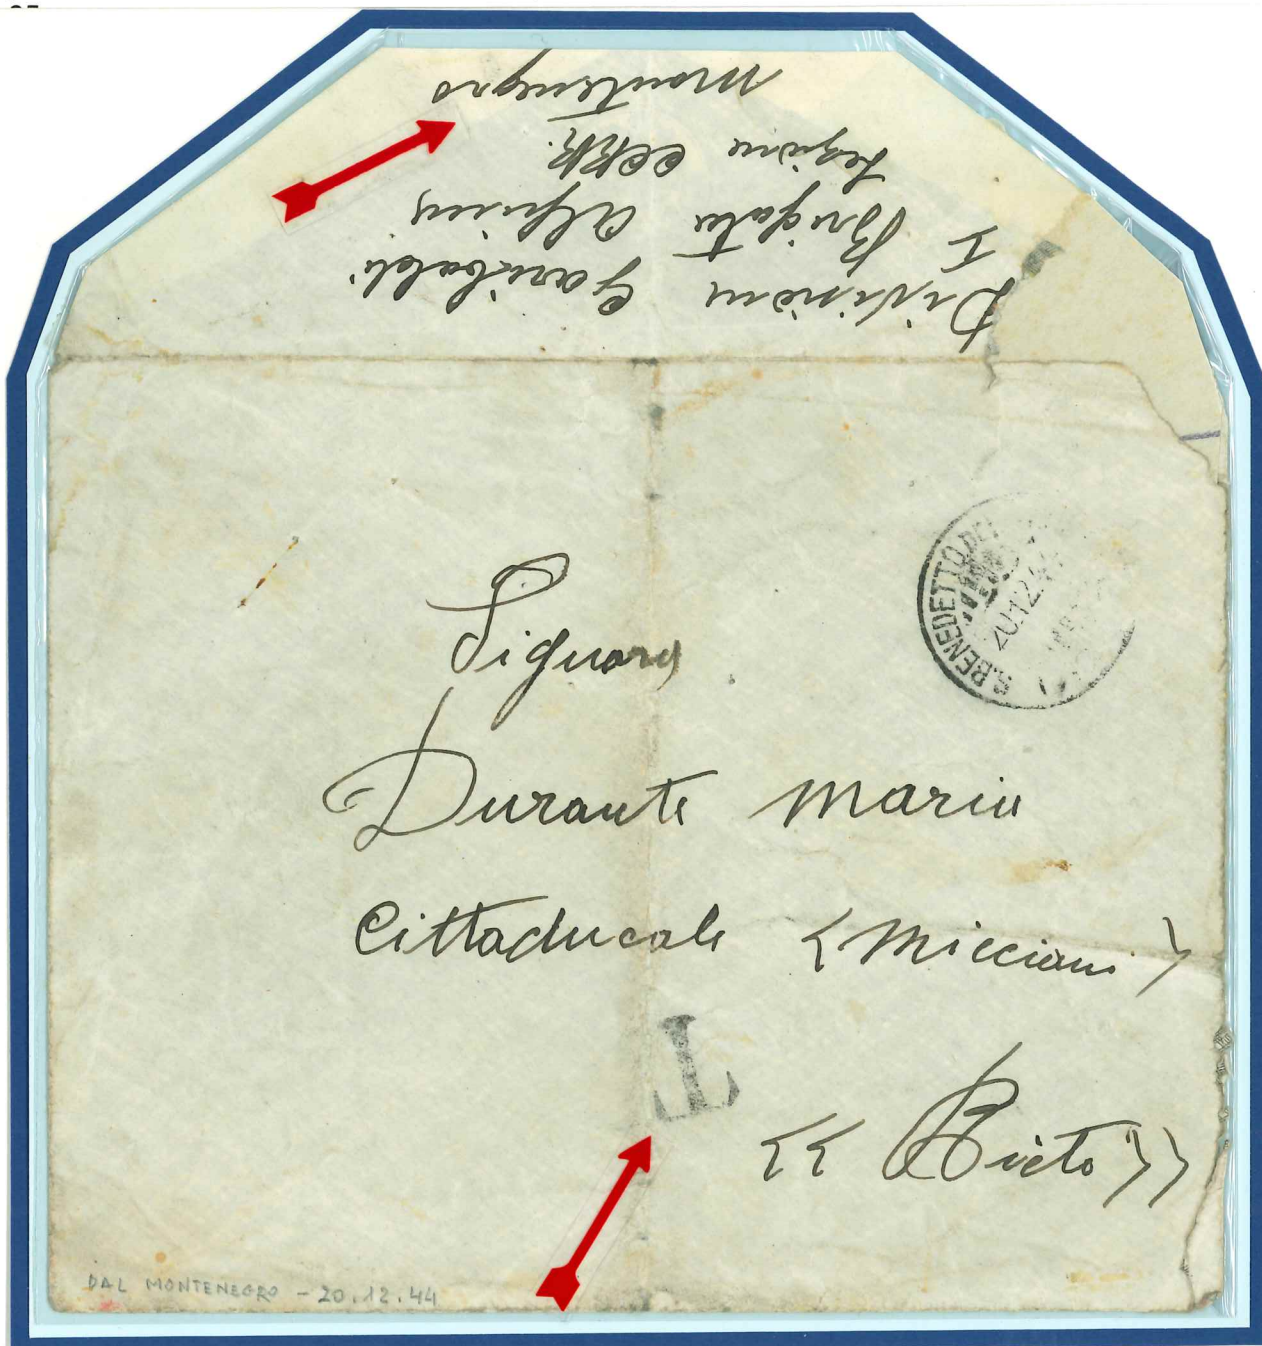 Divisione Garibaldi
I Brigata Alpina
Legione CC.RR.
Montenegro
S. BENEDETTO DEL
20.12.44
Signora
Durante Maria
Cittaducale < Micciani >
T
<< Rieto >>
DAL MONTENEGRO - 20.12.44